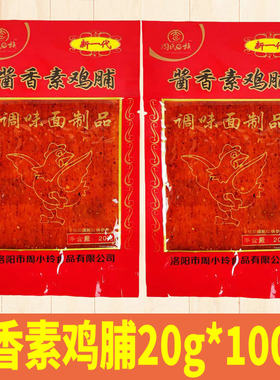 新一代
酱香素鸡脯
调味面制品
洛阳市周小玲食品有限公司
新一代
酱香素鸡脯
调味面制品
洛阳市周小玲食品有限公司
香素鸡脯20g*100